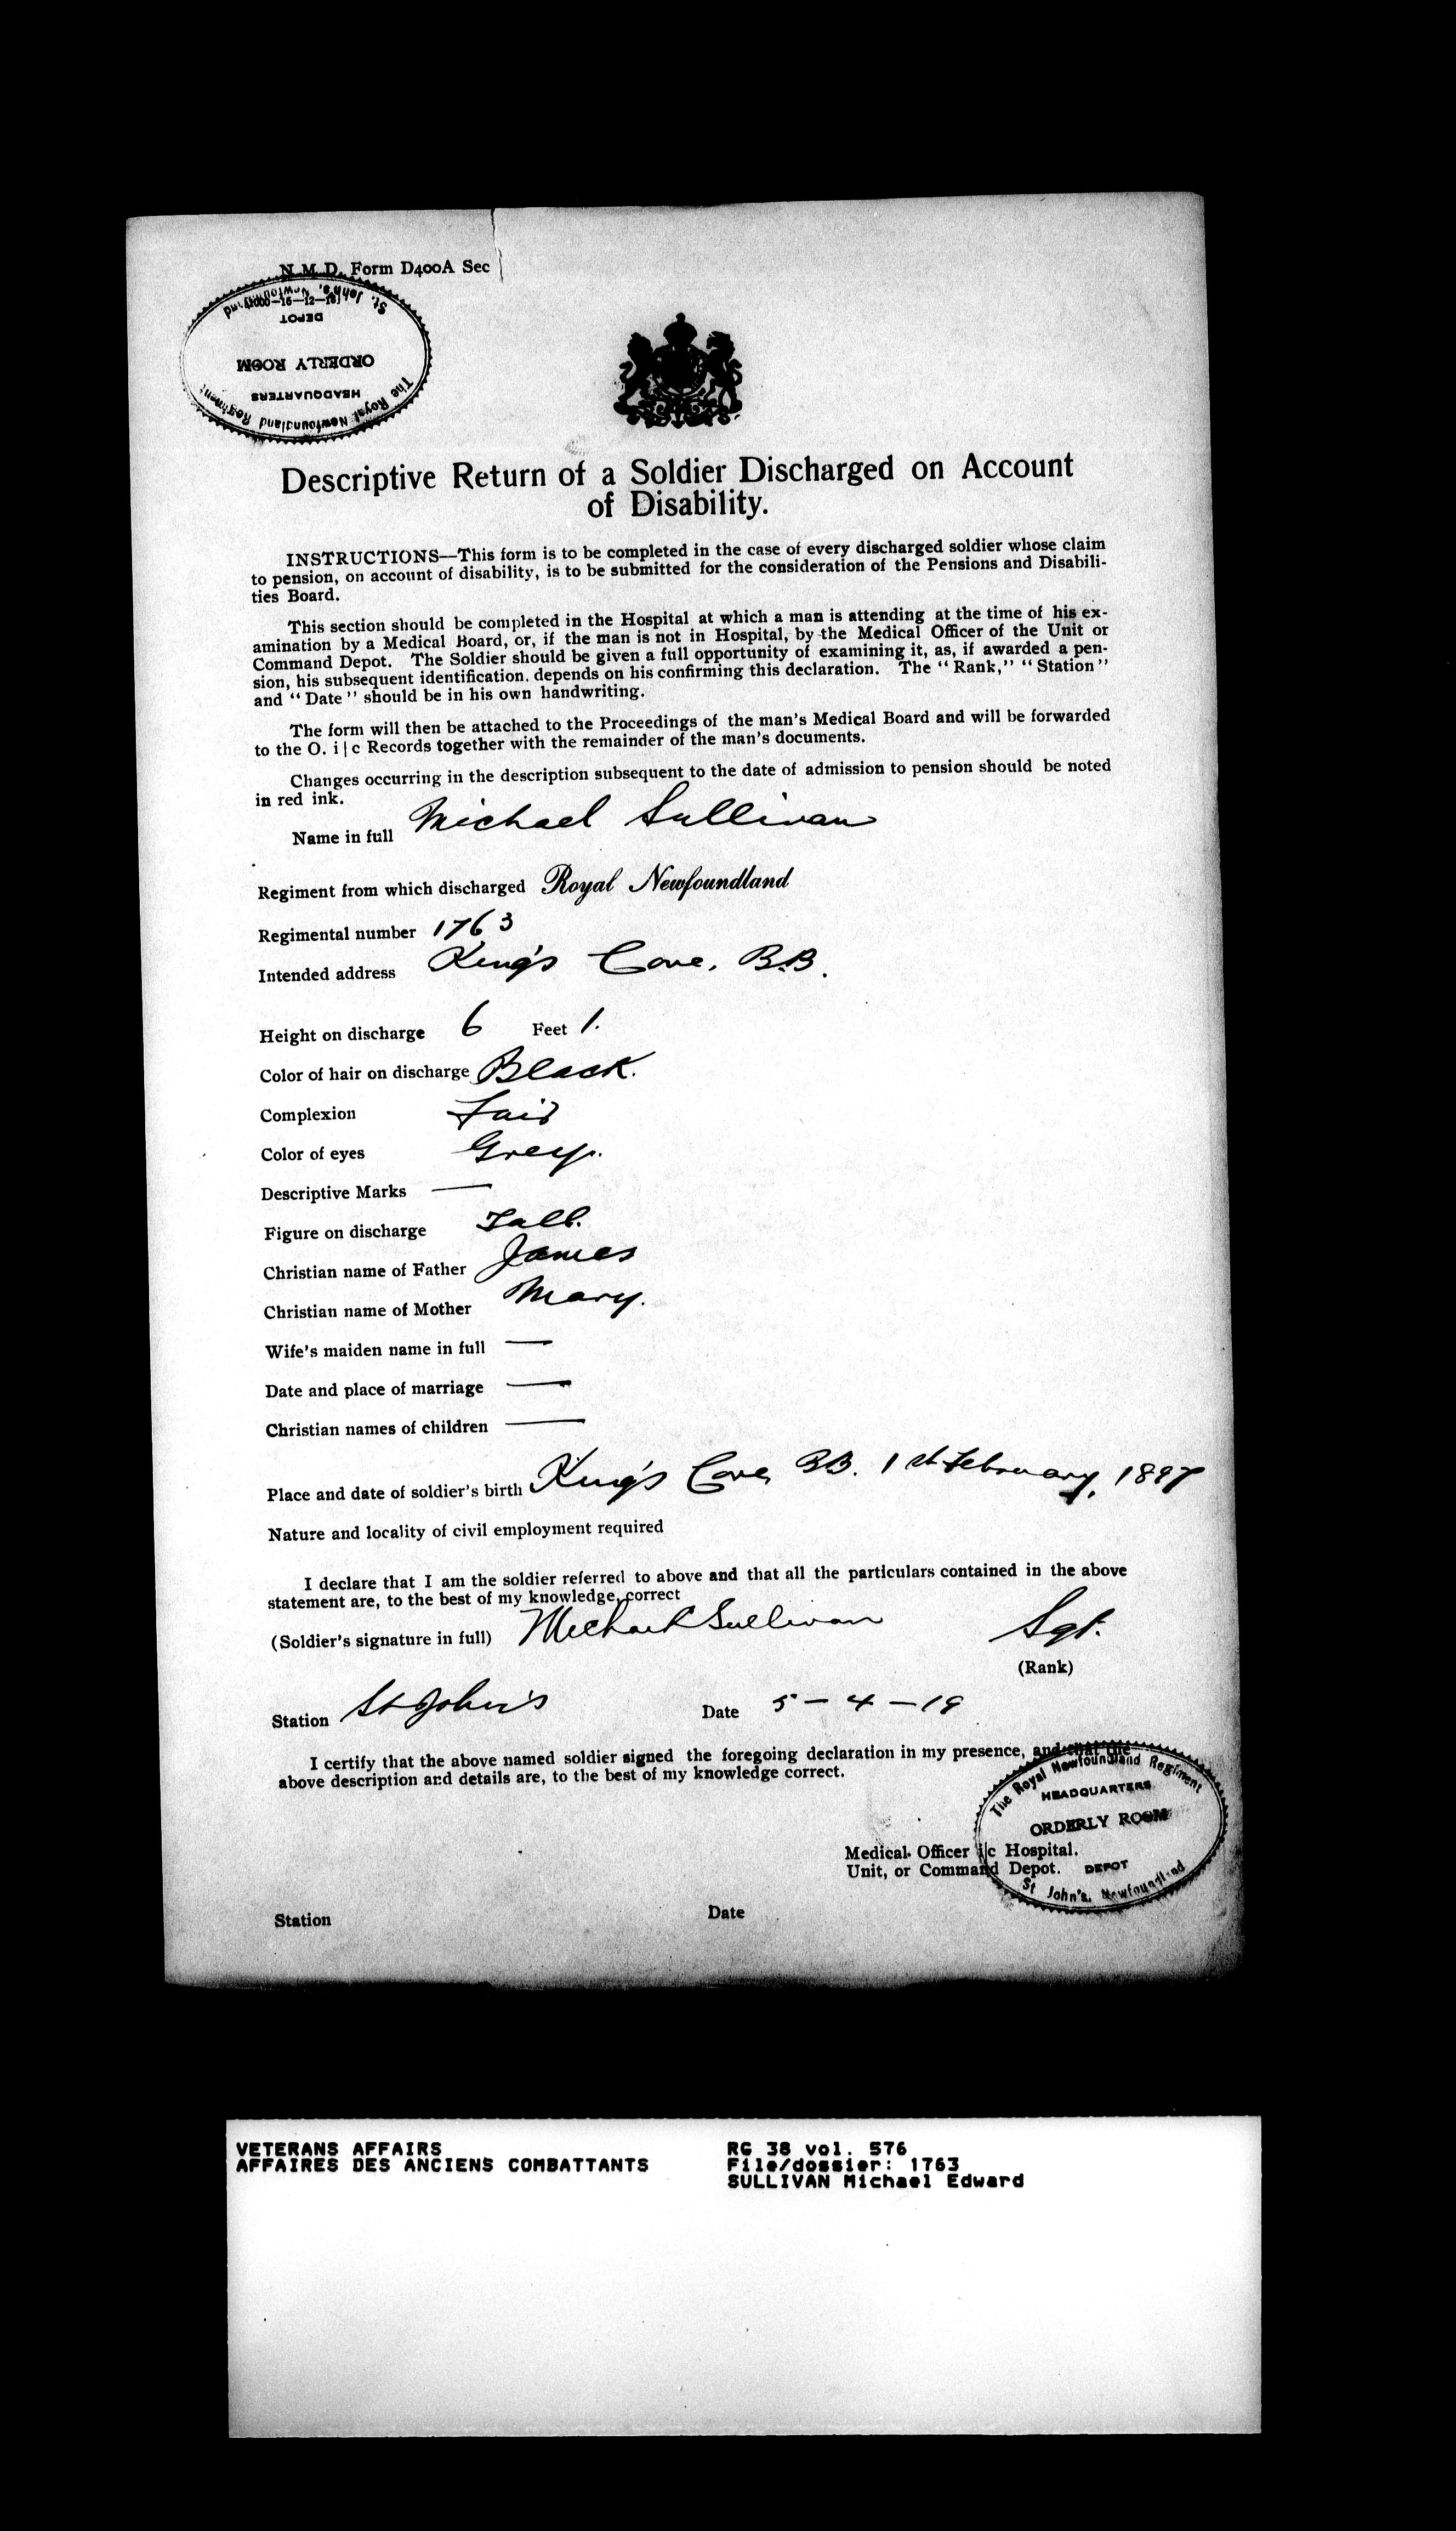 N. M. D. Form D400A Sec
St. John's, Newfoundland
DEPOT
ORDERLY ROOM
HEADQUARTERS
The Royal Newfoundland Regiment
Descriptive Return of a Soldier Discharged on Account
of Disability.
INSTRUCTIONS—This form is to be completed in the case of every discharged soldier whose claim
to pension, on account of disability, is to be submitted for the consideration of the Pensions and Disabili-
ties Board.
This section should be completed in the Hospital at which a man is attending at the time of his ex-
amination by a Medical Board, or, if the man is not in Hospital, by the Medical Officer of the Unit or
Command Depot. The Soldier should be given a full opportunity of examining it, as, if awarded a pen-
sion, his subsequent identification. depends on his confirming this declaration. The "Rank," "Station"
and "Date" should be in his own handwriting.
The form will then be attached to the Proceedings of the man's Medical Board and will be forwarded
to the O. i|c Records together with the remainder of the man's documents.
Changes occurring in the description subsequent to the date of admission to pension should be noted
in red ink.
Name in full Michael Sullivan
Regiment from which discharged Royal Newfoundland
Regimental number 1763
Intended address King's Cove, B.B.
Height on discharge 6 Feet 1.
Color of hair on discharge Black.
Complexion Fair
Color of eyes Grey.
Descriptive Marks —
Figure on discharge Tall.
Christian name of Father James
Christian name of Mother Mary.
Wife's maiden name in full —
Date and place of marriage —
Christian names of children —
Place and date of soldier's birth King's Cove, BB. 1st February, 1897
Nature and locality of civil employment required
I declare that I am the soldier referred to above and that all the particulars contained in the above
statement are, to the best of my knowledge, correct
(Soldier's signature in full) Michael Sullivan Sgt.
(Rank)
Station St John's Date 5-4-19
I certify that the above named soldier signed the foregoing declaration in my presence, and that the
above description and details are, to the best of my knowledge correct.
The Royal Newfoundland Regiment
HEADQUARTERS
ORDERLY ROOM
DEPOT
St John's, Newfoundland
Medical Officer i|c Hospital.
Unit, or Command Depot.
Station Date
VETERANS AFFAIRS RG 38 vol. 576
AFFAIRES DES ANCIENS COMBATTANTS File/dossier: 1763
SULLIVAN Michael Edward